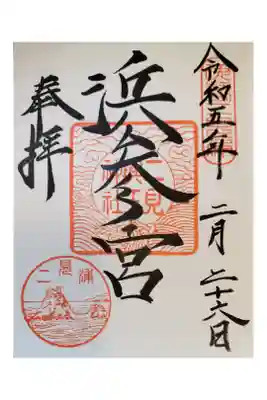 令和五年
二月二十六日
浜参宮
奉拝
二見
神社
二見浦